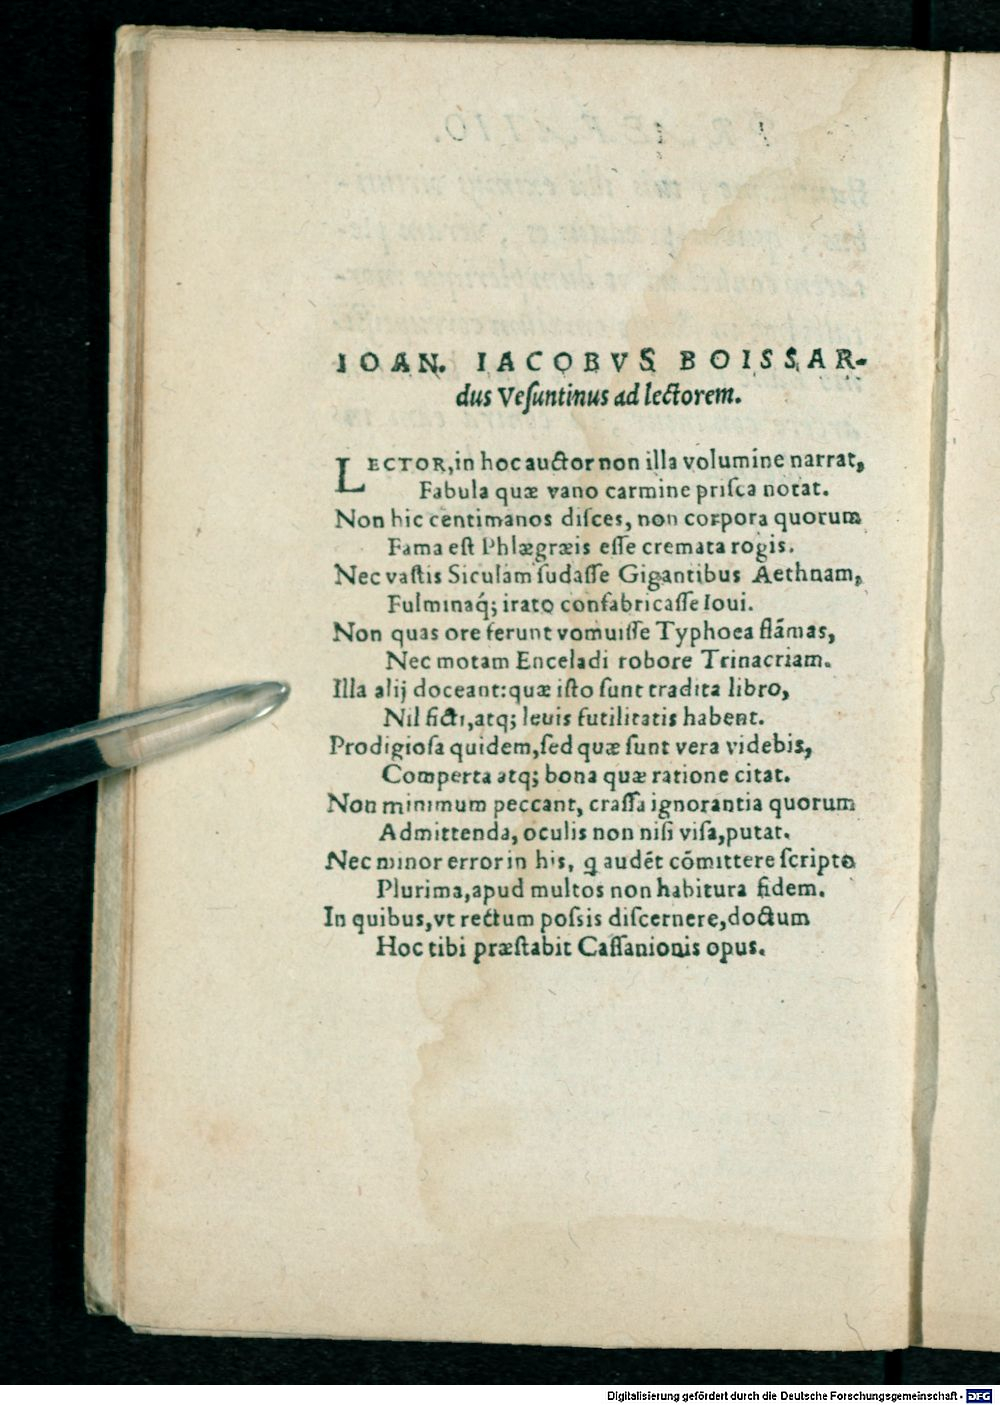 IOAN. IACOBVS BOISSAR-
dus Veſuntinus ad lectorem.
LECTOR, in hoc auctor non illa volumine narrat,
Fabula quæ vano carmine priſca notat.
Non hic centimanos diſces, non corpora quorum
Fama eſt Phlægræis eſſe cremata rogis.
Nec vaſtis Siculam ſudaſſe Gigantibus Aethnam,
Fulminaq́; irato confabricaſſe Ioui.
Non quas ore ferunt vomuiſſe Typhoea flãmas,
Nec motam Enceladi robore Trinacriam.
Illa alij doceant: quæ iſto ſunt tradita libro,
Nil ficti, atq; leuis futilitatis habent.
Prodigioſa quidem, ſed quæ ſunt vera videbis,
Comperta atq; bona quæ ratione citat.
Non minimum peccant, craſſa ignorantia quorum
Admittenda, oculis non niſi viſa, putat.
Nec minor error in his, q audẽt cõmittere ſcripto
Plurima, apud multos non habitura fidem.
In quibus, vt rectum poſsis diſcernere, doctum
Hoc tibi præſtabit Caſſanionis opus.
Digitalisierung gefördert durch die Deutsche Forschungsgemeinschaft - DFG